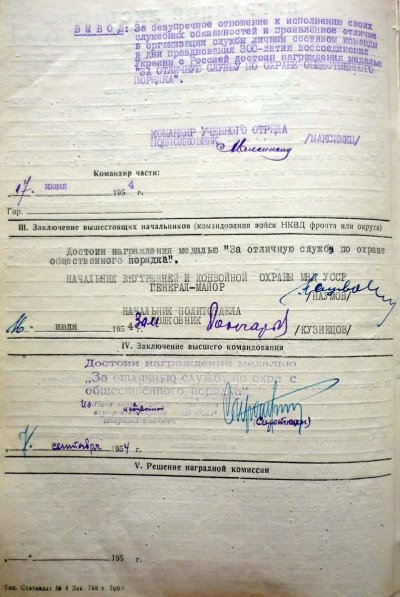 ВЫВОД: За безупречное отношение к исполнению своих
служебных обязанностей и проявленное отличие
в организации службы личным составом команды
в дни празднования 300-летия воссоединения
Украины с Россией достоин награждения медалью
"ЗА ОТЛИЧНУЮ СЛУЖБУ ПО ОХРАНЕ ОБЩЕСТВЕННОГО
ПОРЯДКА".
КОМАНДИР УЧЕБНОГО ОТРЯДА
ПОДПОЛКОВНИК /МАКСИМЕЦ/
Командир части:
"17" июня 1954 г.
Гор.
III. Заключение вышестоящих начальников (командования войск НКВД фронта или округа)
Достоин награждения медалью "За отличную службу по охране
общественного порядка".
НАЧАЛЬНИК ВНУТРЕННЕЙ И КОНВОЙНОЙ ОХРАНЫ МВД УССР
ГЕНЕРАЛ-МАЙОР /НАУМОВ/
НАЧАЛЬНИК ПОЛИТОТДЕЛА
ПОЛКОВНИК /КУЗНЕЦОВ/
"16" июля 1954 г.
IV. Заключение высшего командования
Достоин награждения медалью
„За отличную службу по охране
общественного порядка"
"7" сентября 1954 г.
V. Решение наградной комиссии
„ " 195 г.
Тип. Стандарт № 4 Зак. 788 г. 7609